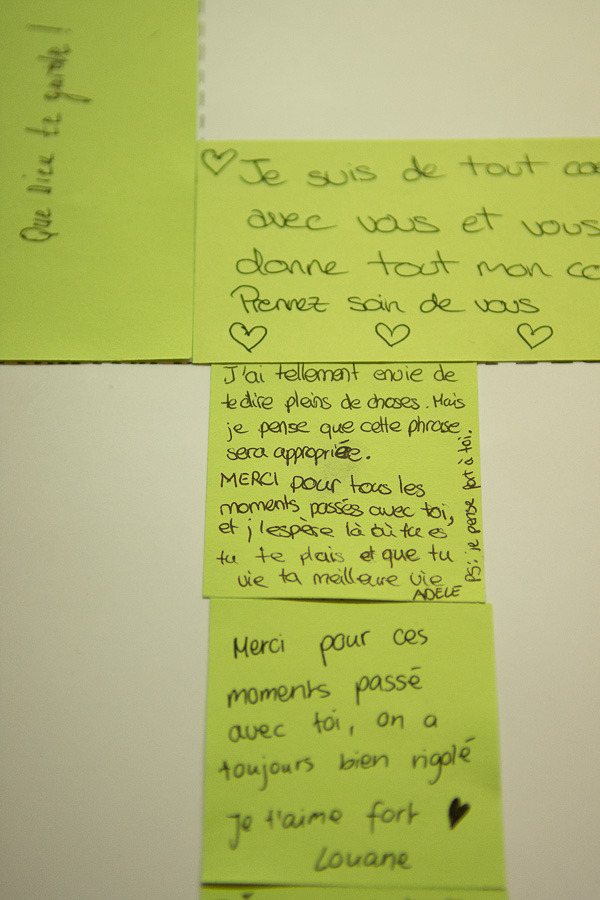 Que Dieu te garde !
Je suis de tout
avec vous et vous
donne tout mon
Prennez soin de vous
J'ai tellement envie de
te dire pleins de choses. Mais
je pense que cette phrase
sera appropriée.
MERCI pour tous les
moments passés avec toi,
et j'espère là où tu es
tu te plais et que tu
vie ta meilleure vie
ADELE
PS: je pense fort à toi.
Merci pour ces
moments passé
avec toi, on a
toujours bien rigolé
Je t'aime fort
Louane